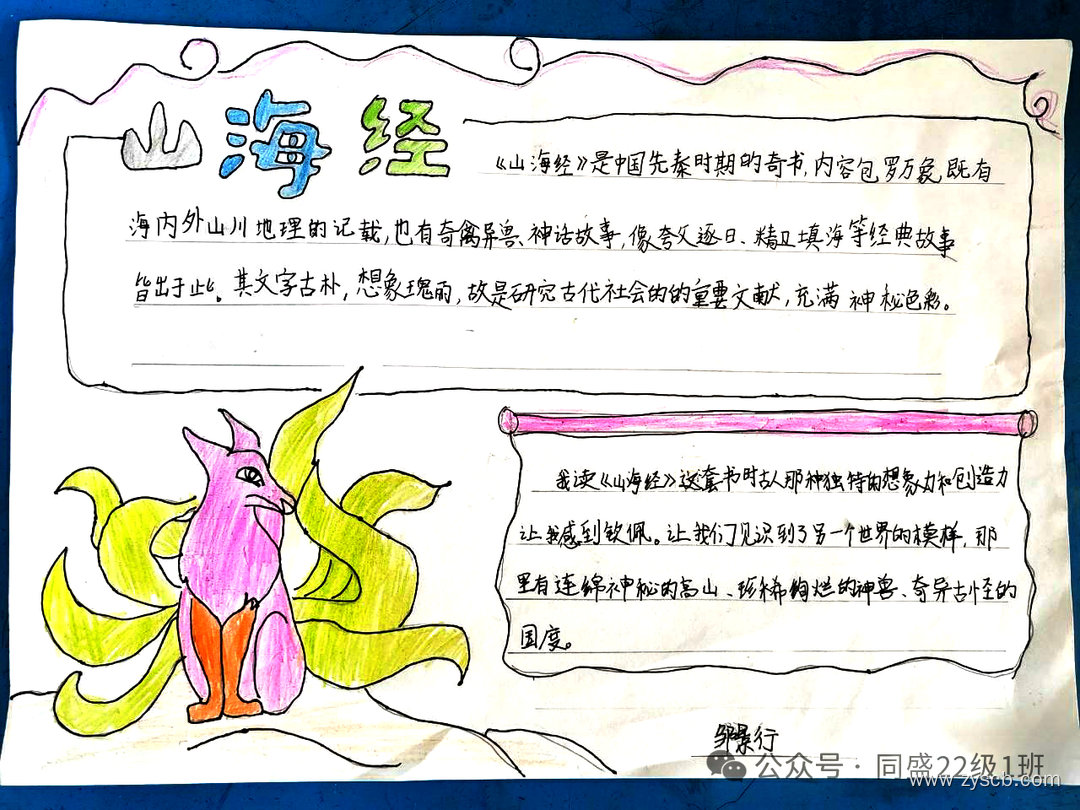 山海经
《山海经》是中国先秦时期的奇书,内容包罗万象,既有
海内外山川地理的记载,也有奇禽异兽、神话故事,像夸父逐日、精卫填海等经典故事
皆出于此。其文字古朴,想象瑰丽,故是研究古代社会的的重要文献,充满神秘色彩。
我读《山海经》这套书时古人那种独特的想象力和创造力
让我感到钦佩。让我们见识到了另一个世界的模样,那
里有连绵神秘的高山、珍稀绚烂的神兽、奇异古怪的
国度。
邹景行
公众号·同盛22级1班
www.zyscb.com